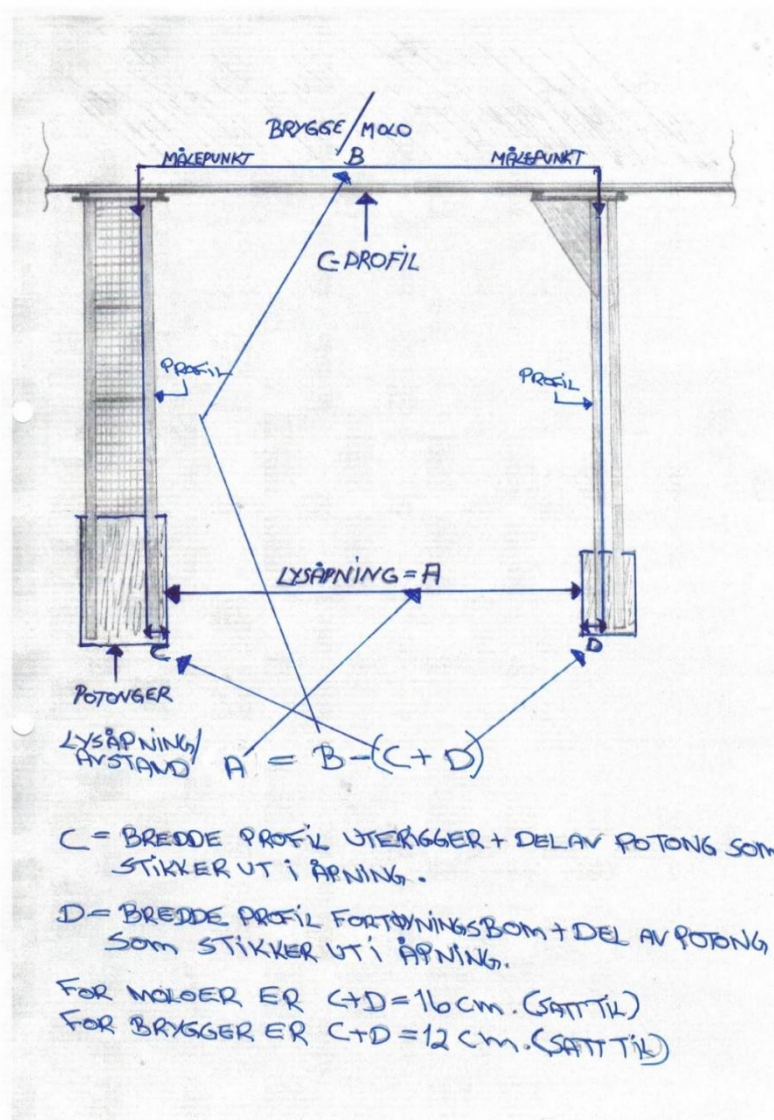 BRYGGE/MOLO
MÅLEPUNKT B MÅLEPUNKT
C-PROFİL
PROFİL
PROFİL
LYSÅPNİNG = A
C
D
POTONGER
LYSÅPNİNG/
AVSTAND A = B-(C+D)
C = BREDDE PROFİL UTERİGGER + DEL AV POTONG SOM
STİKKER UT İ ÅPNİNG.
D = BREDDE PROFİL FORTØYNİNGSBOM + DEL AV POTONG
SOM STİKKER UT İ ÅPNİNG.
FOR MOLOER ER C+D = 16 cm. (SATT TİL)
FOR BRYGGER ER C+D = 12 cm. (SATT TİL)